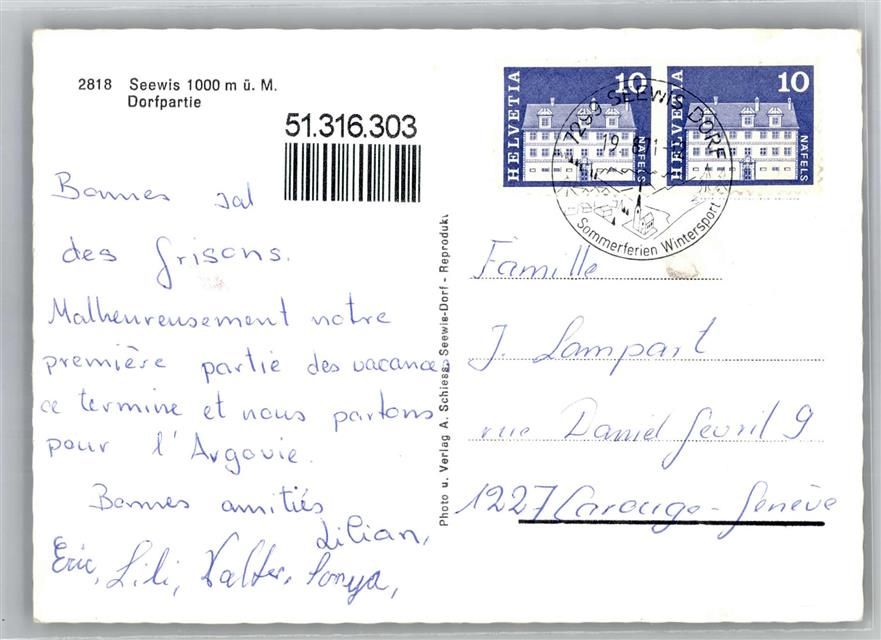 2818 Seewis 1000 m ü. M.
Dorfpartie
51.316.303
HELVETIA 10 NÄFELS
HELVETIA 10 NÄFELS
SEEWIS DORF
Sommerferien Wintersport
Photo u. Verlag A. Schiess, Seewis-Dorf - Reprodukt.
Bonnes sal
des Grisons.
Malheureusement notre
première partie des vacances
ce termine et nous partons
pour l'Argovie.
Bonnes amitiés
Lilian,
Eric, Lili, Walter, Sonya,
Famille
J. Lampart
rue Daniel Gevril 9
1227 Carouge-Genève